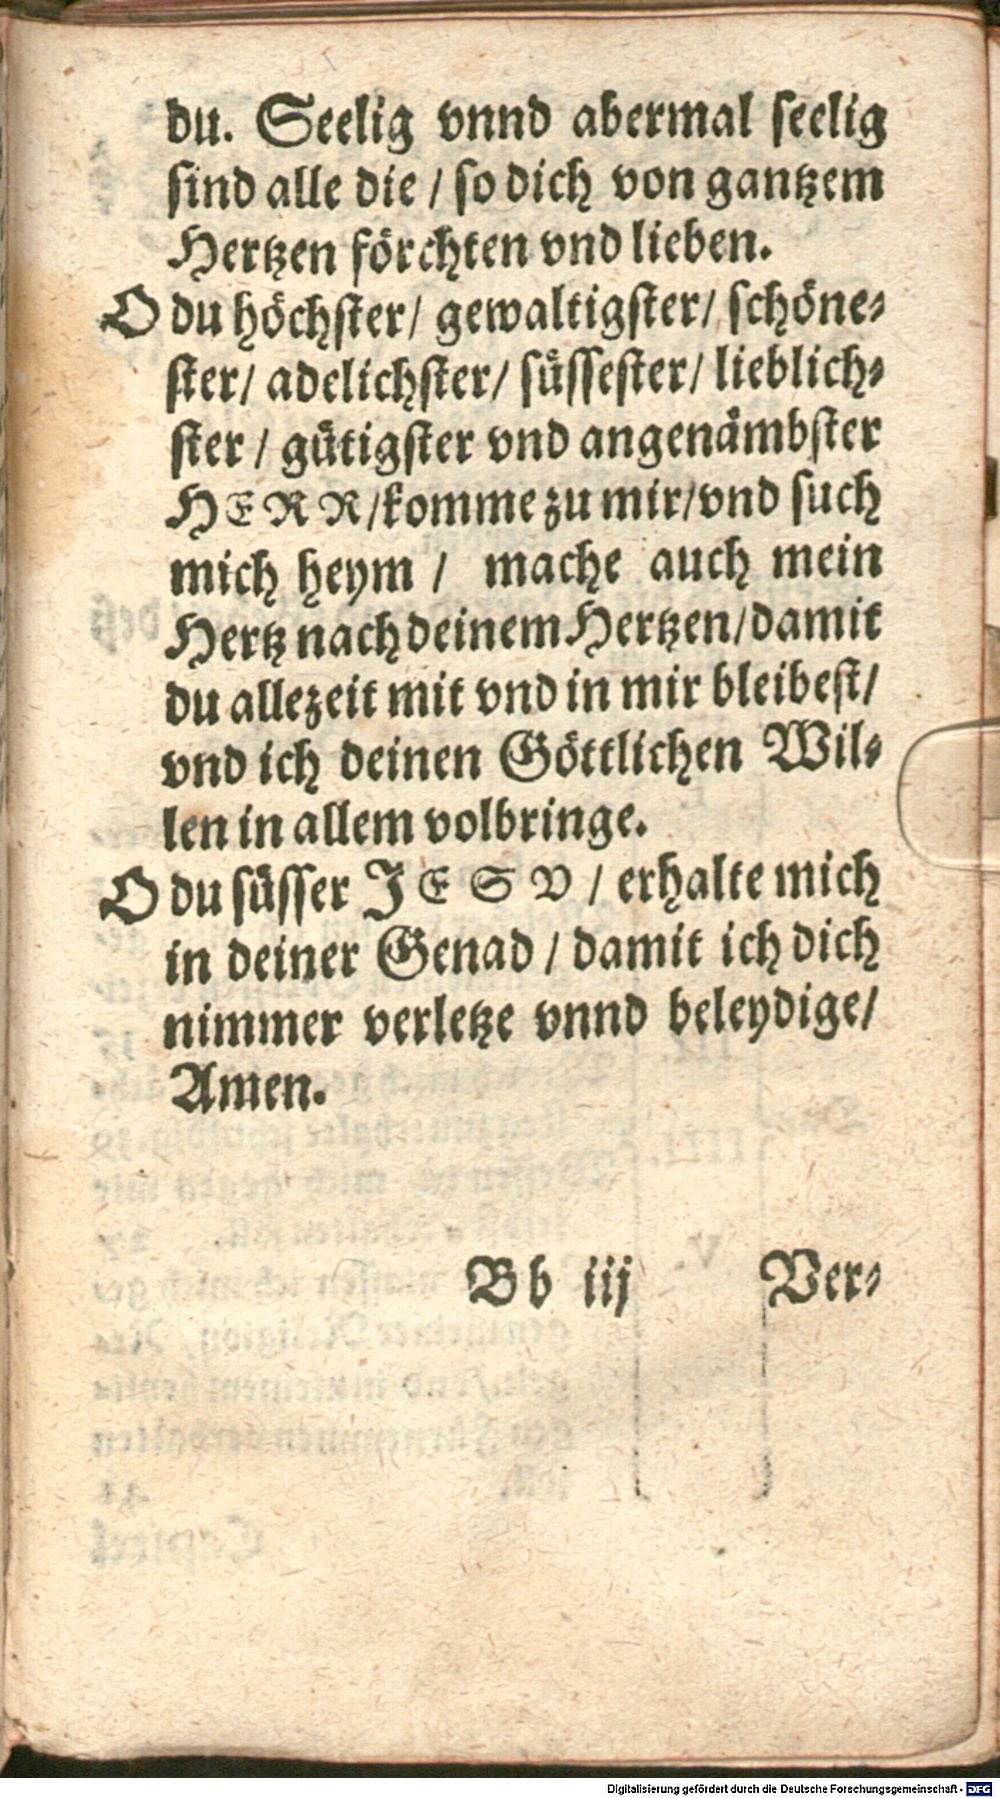 du. Seelig vnnd abermal seelig
sind alle die / so dich von gantzem
Hertzen förchten vnd lieben.
O du höchster/ gewaltigster/ schöne-
ster/ adelichster/ süssester/ lieblich-
ster / gütigster vnd angenämbster
HERR/komme zu mir/vnd such
mich heym / mache auch mein
Hertz nach deinem Hertzen/damit
du allezeit mit vnd in mir bleibest/
vnd ich deinen Göttlichen Wil-
len in allem volbringe.
O du süsser JESV / erhalte mich
in deiner Genad / damit ich dich
nimmer verletze vnnd beleydige/
Amen.
Bb iij Ver-
Digitalisierung gefördert durch die Deutsche Forschungsgemeinschaft - DFG